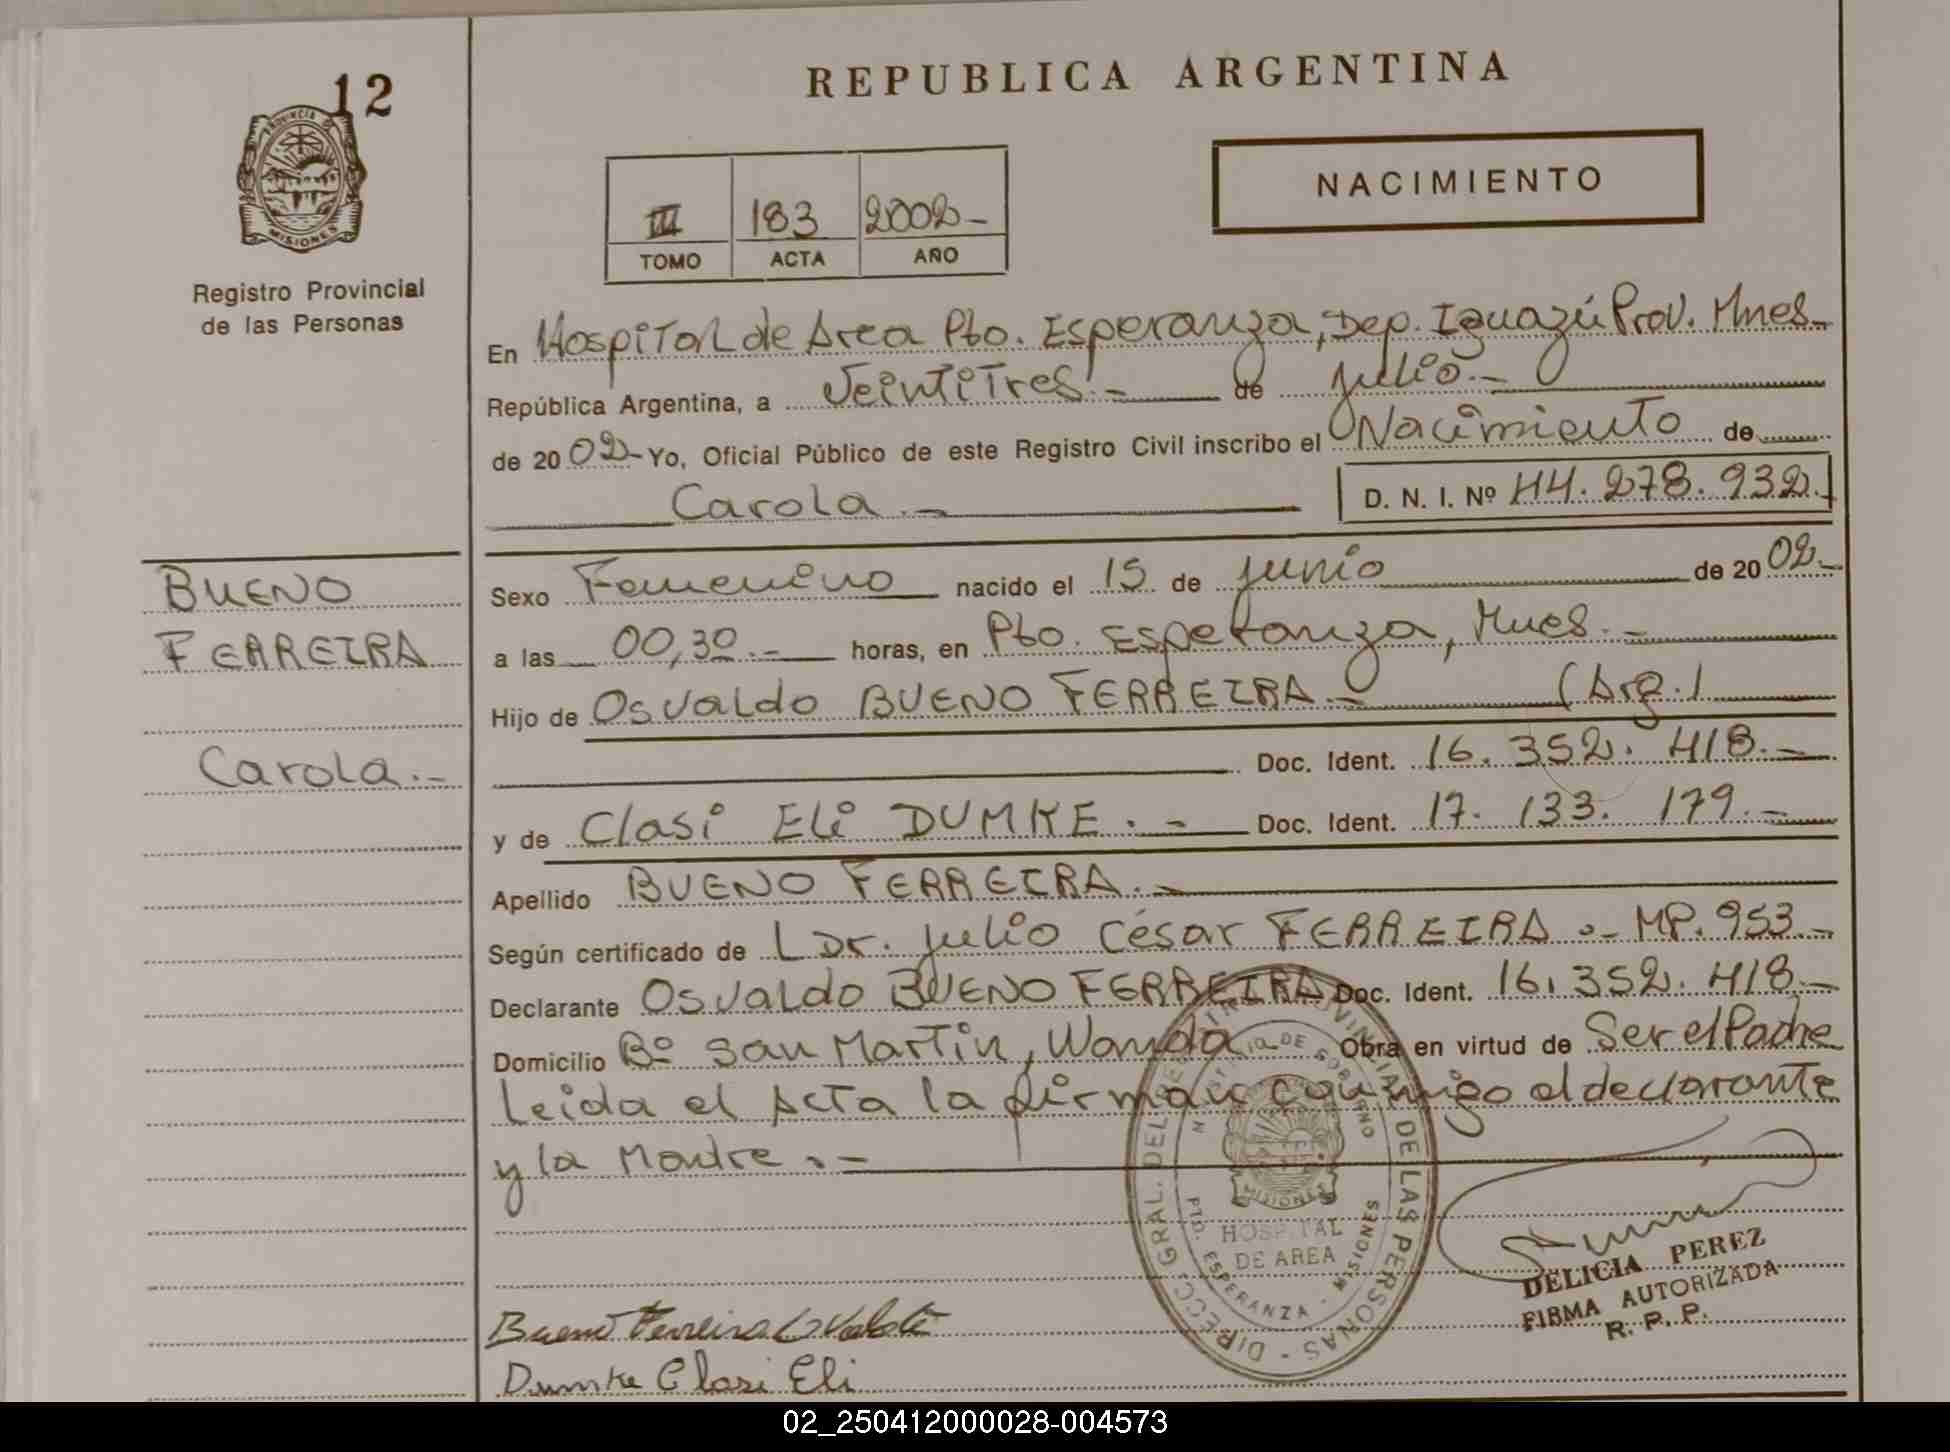 12
PROVINCIA DE
MISIONES
Registro Provincial
de las Personas
REPUBLICA ARGENTINA
NACIMIENTO
III 183 2002-
TOMO ACTA AÑO
En Hospital de Area Pto. Esperanza, Dep. Iguazú Prov. Mnes-
República Argentina, a Veintitres.- de julio.-
de 2002- Yo, Oficial Público de este Registro Civil inscribo el Nacimiento de
Carola.- D. N. I. Nº 44.278.932.
BUENO
FERREIRA
Carola.-
Sexo Femenino nacido el 15 de junio de 2002-
a las 00,30.- horas, en Pto. Esperanza, Mnes.-
Hijo de Osvaldo BUENO FERREIRA.- (Arg.)
Doc. Ident. 16.352.418.-
y de Clasi Eli DUMKE.- Doc. Ident. 17.133.179.-
Apellido BUENO FERREIRA.-
Según certificado de Dr. julio César FERREIRA.- MP. 953-
Declarante Osvaldo BUENO FERREIRA Doc. Ident. 16.352.418.-
Domicilio Bº San Martin, Wanda Obra en virtud de Ser el Padre
Leida el Acta la firman conmigo el declarante
y la Madre.-
DIRECC. GRAL. DEL REGISTRO PROVINCIAL DE LAS PERSONAS
MINISTERIO DE GOBIERNO
MISIONES
HOSPITAL
DE AREA
PTO. ESPERANZA - MISIONES
DELICIA PEREZ
FIRMA AUTORIZADA
R. P. P.
Bueno Ferreira Osvaldo
Dumke Clasi Eli
02_250412000028-004573